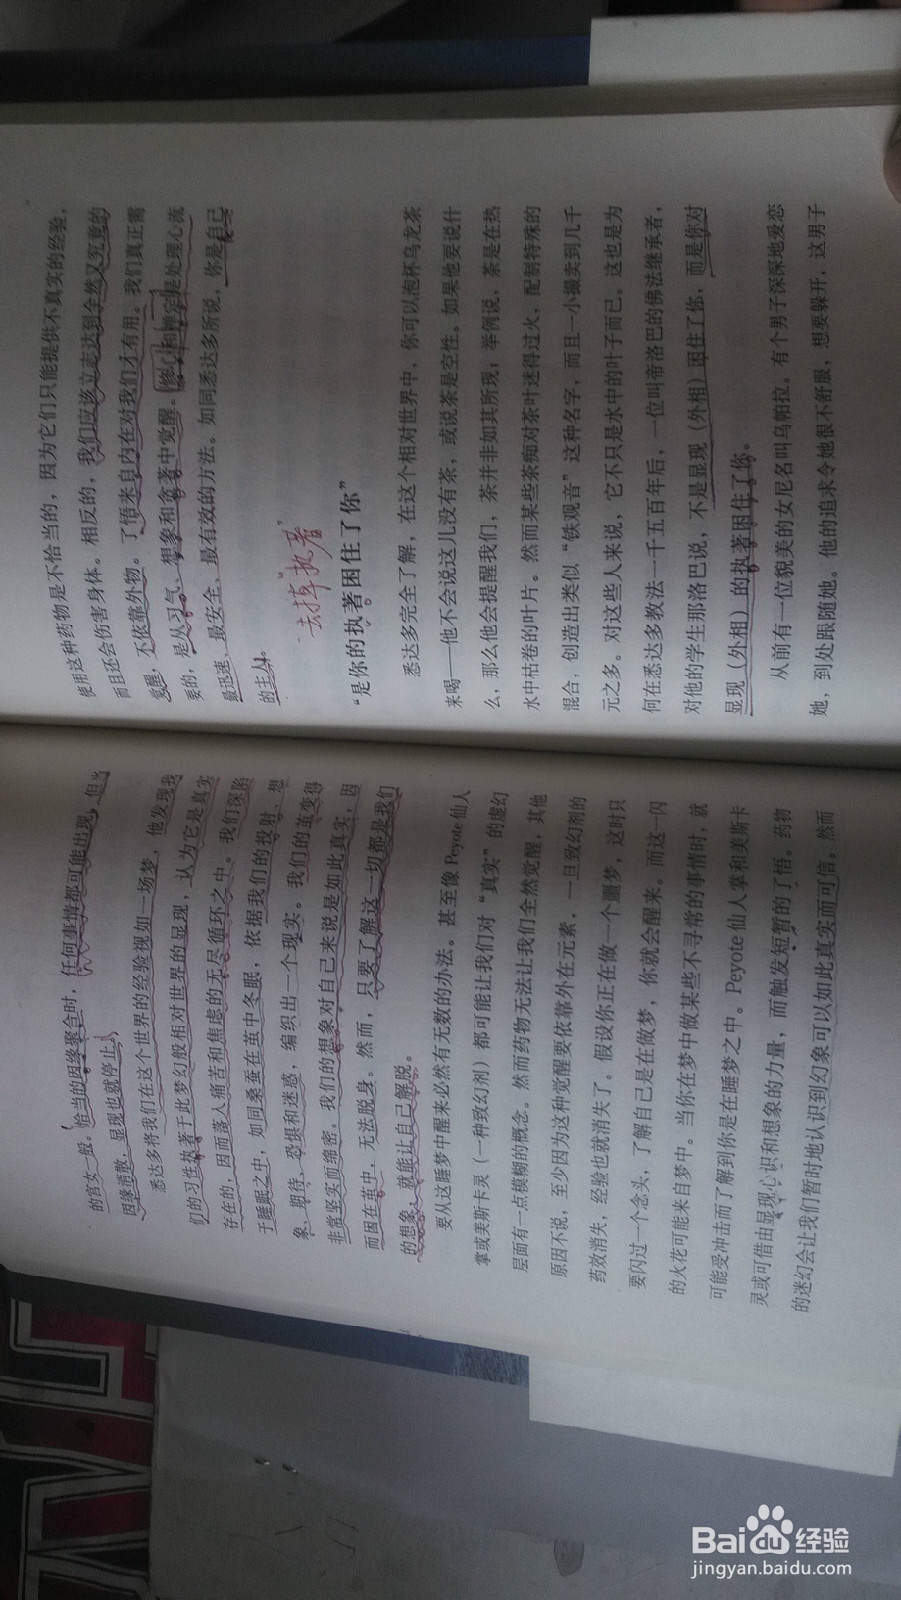 的宫女一般。恰当的因缘聚合时，任何事情都可能出现，但当
因缘消散，显现也就停止。
悉达多将我们在这个世界的经验视如一场梦，他发现我
们的习性执著于此梦幻般相对世界的显现，认为它是真实
存在的，因而落入痛苦和焦虑的无尽循环之中。我们深陷
于睡眠之中，如同桑蚕在茧中冬眠，依据我们的投射、想
象、期待、恐惧和迷惑，编织出一个现实。我们的茧变得
非常坚实而绵密。我们的想象对自己来说是如此真实，因
而困在茧中，无法脱身。然而，只要了解这一切都是我们
的想象，就能让自己解脱。
要从这睡梦中醒来必然有无数的办法。甚至像Peyote仙人
掌或美斯卡灵（一种致幻剂）都可能让我们对“真实”的虚幻
层面有一点模糊的概念。然而药物无法让我们全然觉醒，其他
原因不说，至少因为这种觉醒要依靠外在元素，一旦致幻剂的
药效消失，经验也就消失了。假设你正在做一个噩梦，这时只
要闪过一个念头，了解自己是在做梦，你就会醒来。而这一闪
的火花可能来自梦中。当你在梦中做某些不寻常的事情时，就
可能受冲击而了解到你是在睡梦之中。Peyote仙人掌和美斯卡
灵或可借由显现心识和想象的力量，而触发短暂的了悟。药初
的迷幻会让我们暂时地认识到幻象可以如此真实而可信。然而
使用这种药物是不恰当的，因为它们只能提供不真实的经验，
而且还会伤害身体。相反的，我们应该立志达到全然又究竟的
觉醒，不依靠外物。了悟来自内在对我们才有用。我们真正需
要的，是从习气、想象和贪著中觉醒。修心和禅定是处理心流
最迅速、最安全、最有效的方法。如同悉达多所说，你是自己
的主人。
去掉“执著”
“是你的执著困住了你”
悉达多完全了解，在这个相对世界中，你可以泡杯乌龙茶
来喝——他不会说这儿没有茶，或说茶是空性。如果他要说什
么，那么他会提醒我们，茶并非如其所现；举例说，茶是在热
水中枯卷的叶片。然而某些茶痴对茶叶迷得过火，配制特殊的
混合，创造出类似“铁观音”这种名字，而且一小撮卖到几千
元之多。对这些人来说，它不只是水中的叶子而已。这也是为
何在悉达多教法一千五百年后，一位叫帝洛巴的佛法继承者，
对他的学生那洛巴说，不是显现（外相）困住了你，而是你对
显现（外相）的执著困住了你。
从前有一位貌美的女尼名叫乌帕拉。有个男子深深地爱恋
她，到处跟随她。他的追求令她很不舒服，想要躲开，这男子
Baidu经验
jingyan.baidu.com